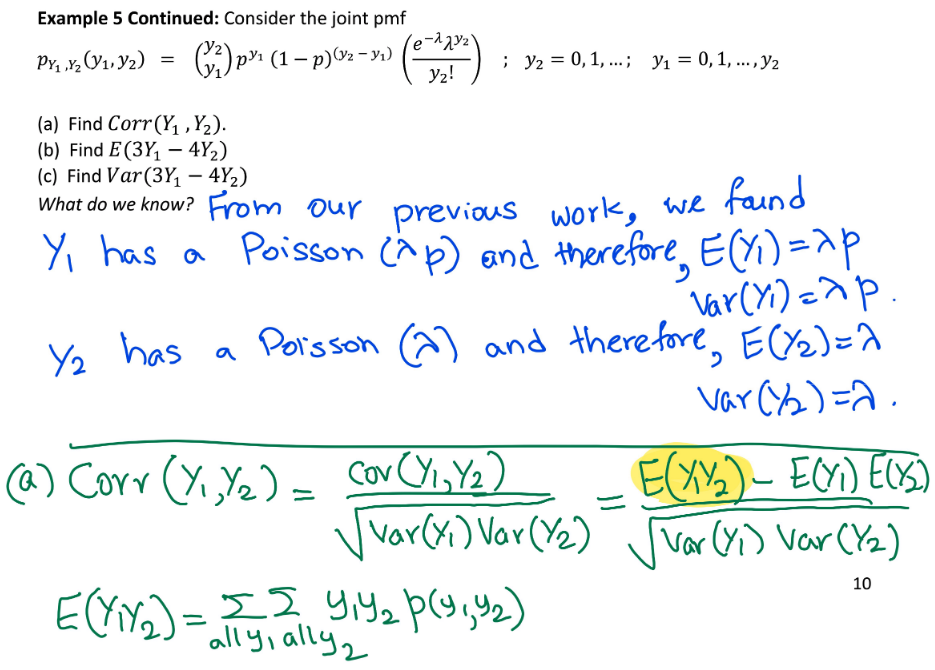 Example 5 Continued: Consider the joint pmf
p_{Y₁,Y₂}(y₁, y₂) = \binom{y₂}{y₁} p^{y₁} (1 − p)^{(y₂ − y₁)} \left(\frac{e^{−λ} λ^{y₂}}{y₂!}\right) ; y₂ = 0, 1, …; y₁ = 0, 1, …, y₂
(a) Find Corr(Y₁ , Y₂).
(b) Find E(3Y₁ − 4Y₂)
(c) Find Var(3Y₁ − 4Y₂)
What do we know? From our previous work, we found
Y₁ has a Poisson (λp) and therefore, E(Y₁) = λp
Var(Y₁) = λp.
Y₂ has a Poisson (λ) and therefore, E(Y₂) = λ
Var(Y₂) = λ.
(a) Corr(Y₁,Y₂) = \frac{Cov(Y₁,Y₂)}{\sqrt{Var(Y₁) Var(Y₂)}} = \frac{E(Y₁Y₂) − E(Y₁) E(Y₂)}{\sqrt{Var(Y₁) Var(Y₂)}}
10
E(Y₁Y₂) = \sum_{all y₁} \sum_{all y₂} y₁y₂ p(y₁,y₂)